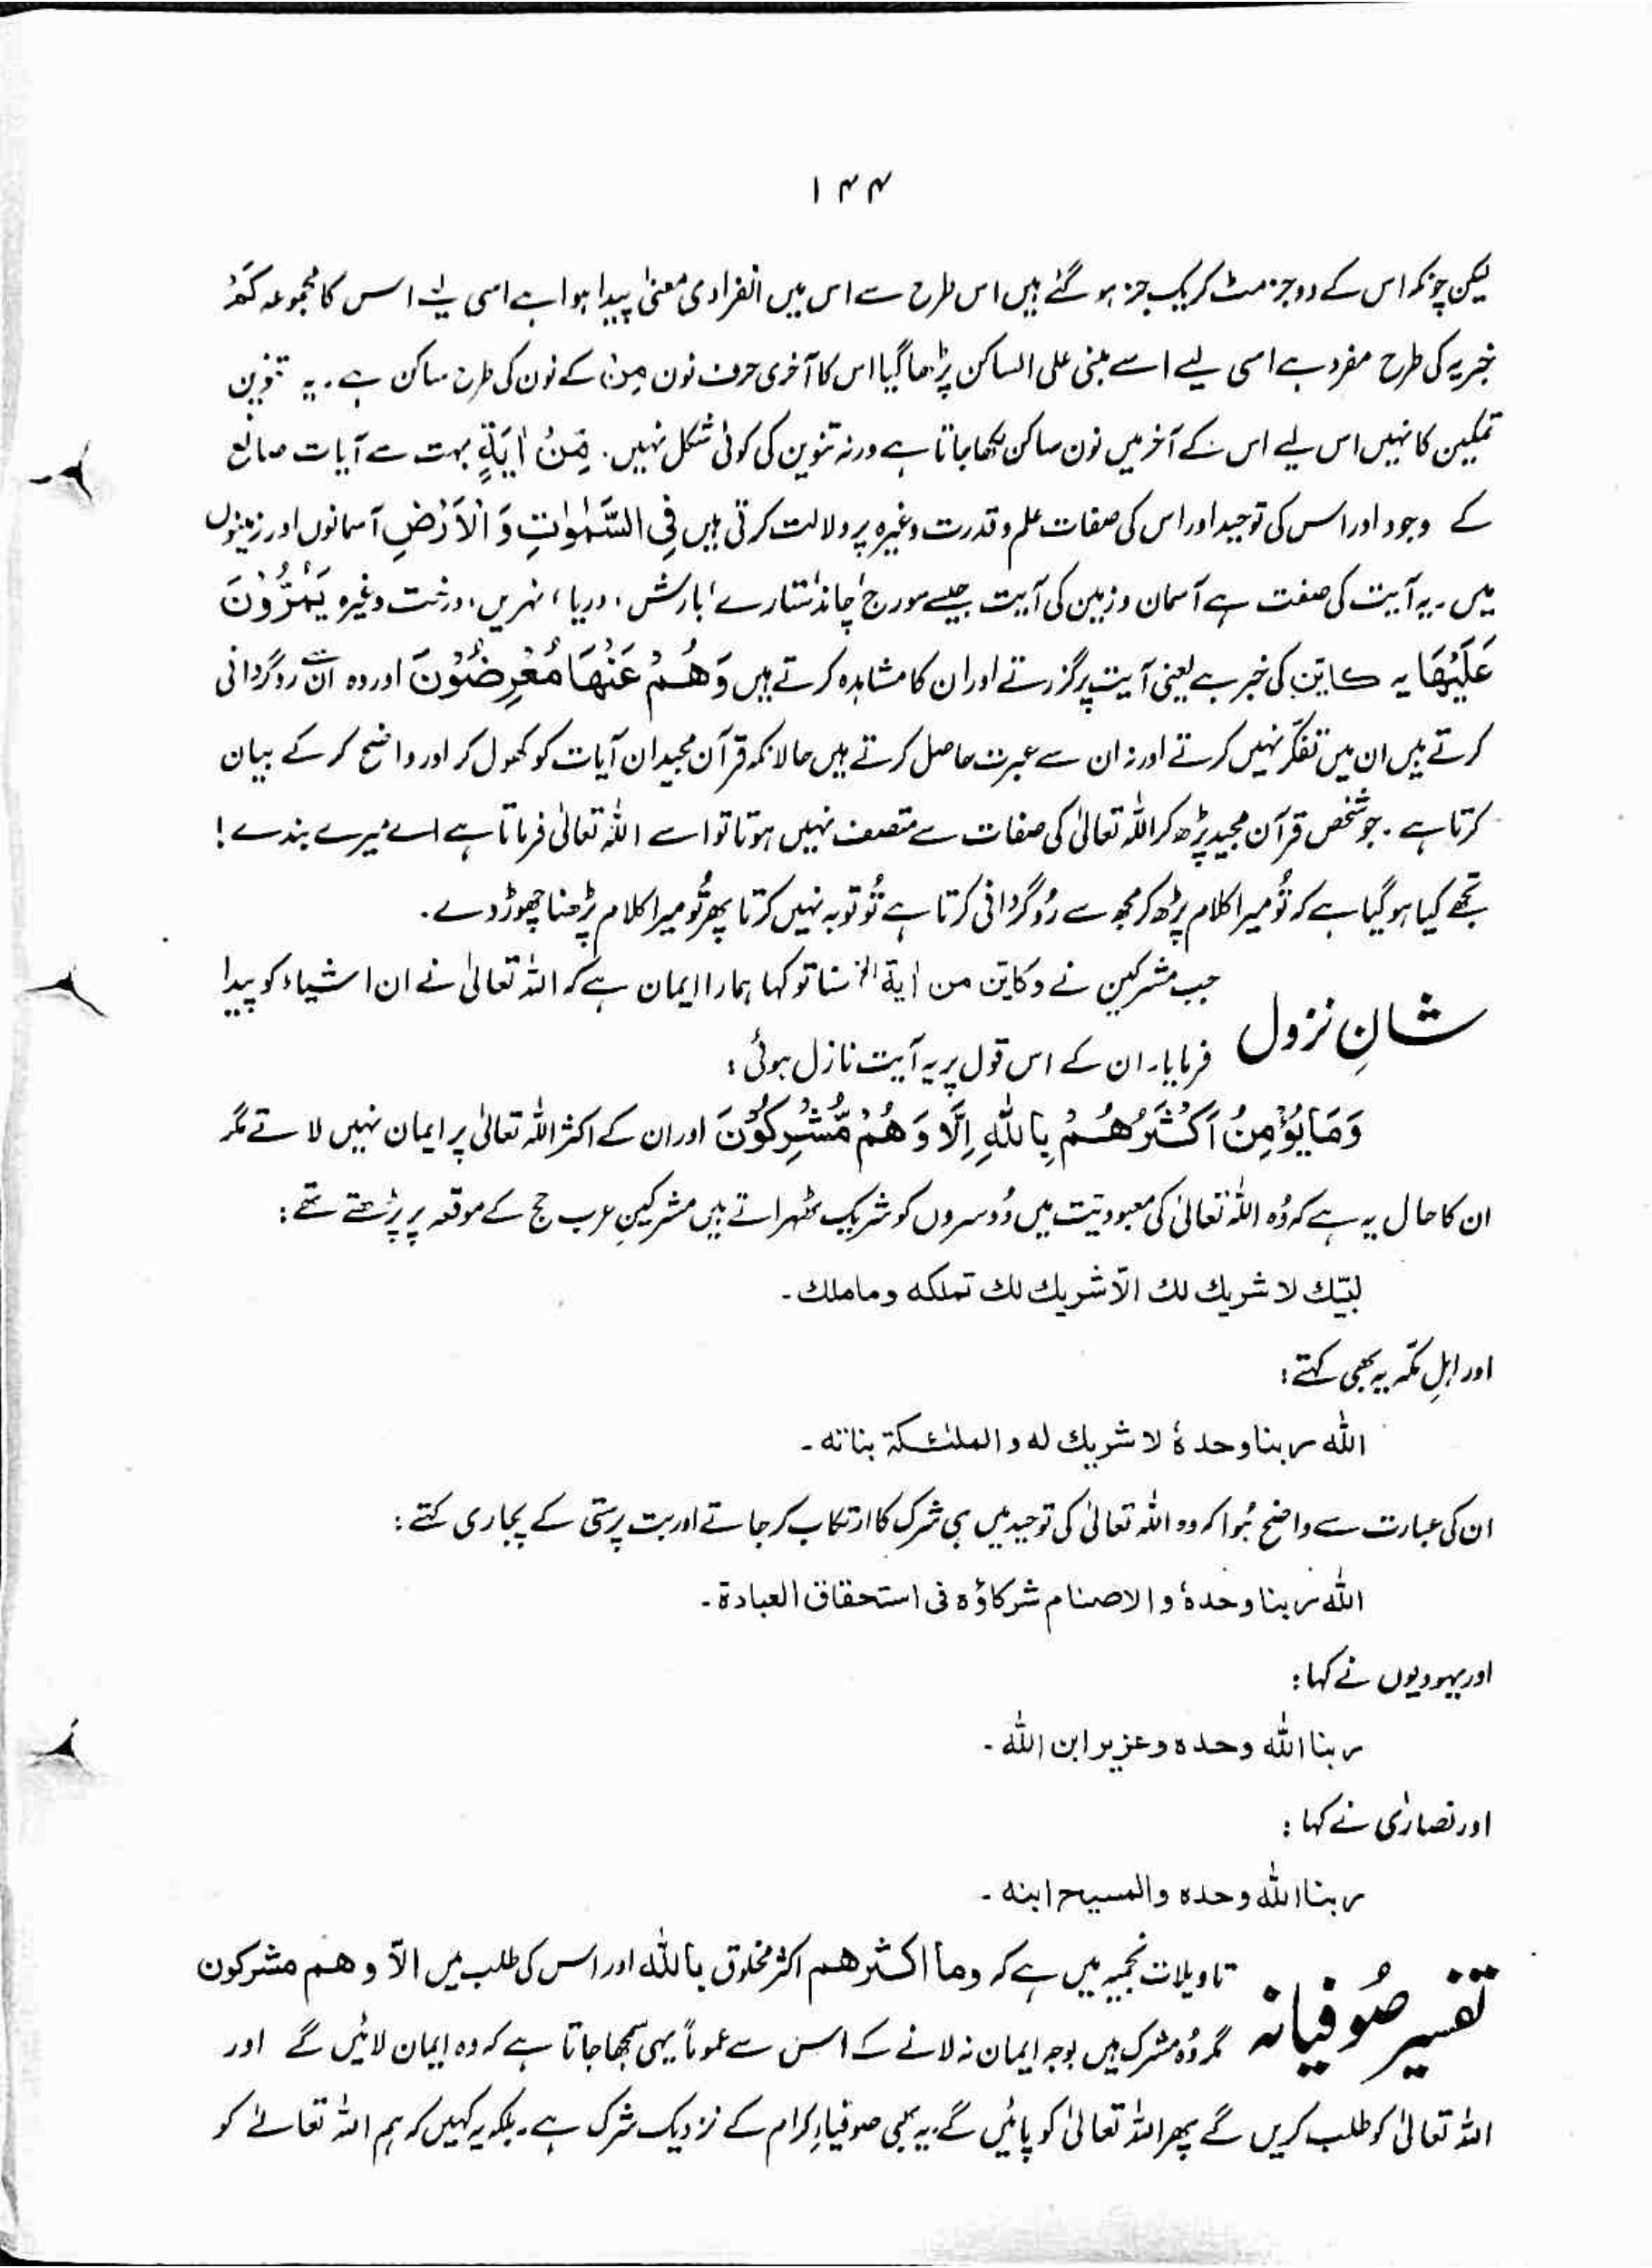 ۱۴۴
لیکن چونکہ اس کے دو جز مٹ کر یک جز ہو گئے ہیں اس طرح سے اس میں انفرادی معنیٰ پیدا ہوا ہے اسی لیے اس کا مجموعہ کَمْ
خبریہ کی طرح مفرد ہے اسی لیے اسے مبنی علی الساکن پڑھا گیا اس کا آخری حرف نون مِنْ کے نون کی طرح ساکن ہے۔ یہ تنوین
تمکین کا نہیں اس لیے اس کے آخر میں نون ساکن لکھا جاتا ہے ورنہ تنوین کی کوئی شکل نہیں۔ مِّنْ اٰیَةٍ بہت سے آیات صانع
کے وجود اور اس کی توحید اور اس کی صفات علم و قدرت وغیرہ پر دلالت کرتی ہیں فِی السَّمٰوٰتِ وَ الْاَرْضِ آسمانوں اور زمینوں
میں۔ یہ آیت کی صفت ہے آسمان و زمین کی آیت جیسے سورج، چاند، ستارے، بارش، دریا، نہریں، درخت وغیرہ یَمُرُّوْنَ
عَلَیْهَا یہ کاین کی خبر ہے یعنی آیت پر گزرتے اور ان کا مشاہدہ کرتے ہیں وَ هُمْ عَنْهَا مُعْرِضُوْنَ اور وہ ان سے روگردانی
کرتے ہیں ان میں تفکّر نہیں کرتے اور نہ ان سے عبرت حاصل کرتے ہیں حالانکہ قرآن مجید ان آیات کو کھول کر اور واضح کر کے بیان
کرتا ہے۔ جو شخص قرآن مجید پڑھ کر اللہ تعالیٰ کی صفات سے متصف نہیں ہوتا تو اسے اللہ تعالیٰ فرماتا ہے اے میرے بندے!
تجھے کیا ہو گیا ہے کہ تُو میرا کلام پڑھ کر مجھ سے رُوگردانی کرتا ہے تُو توبہ نہیں کرتا پھر تُو میرا کلام پڑھنا چھوڑ دے۔
شانِ نزول جب مشرکین نے وکاین من اٰیة الخ سنا تو کہا ہمارا ایمان ہے کہ اللہ تعالیٰ نے ان اشیاء کو پیدا
فرمایا۔ ان کے اس قول پر یہ آیت نازل ہوئی:
وَ مَا یُؤْمِنُ اَكْثَرُهُمْ بِاللّٰهِ اِلَّا وَ هُمْ مُّشْرِكُوْنَ اور ان کے اکثر اللہ تعالیٰ پر ایمان نہیں لاتے مگر
ان کا حال یہ ہے کہ وُہ اللہ تعالیٰ کی معبودیّت میں دُوسروں کو شریک ٹھہراتے ہیں مشرکینِ عرب حج کے موقعہ پر پڑھتے تھے:
لبّيك لا شريك لك الّا شريك لك تملكه وما ملك۔
اور اہلِ مکّہ یہ بھی کہتے:
الله ربنا وحدهٗ لا شريك له و الملٰئكة بناته۔
ان کی عبارت سے واضح ہُوا کہ وہ اللہ تعالیٰ کی توحید میں ہی شرک کا ارتکاب کر جاتے اور بت پرستی کے پجاری کہتے:
الله ربنا وحدهٗ و الاصنام شركاؤه فى استحقاق العبادة۔
اور یہودیوں نے کہا:
ربنا الله وحده و عزير ابن الله۔
اور نصاریٰ نے کہا:
ربنا الله وحده و المسيح ابنه۔
تفسیر صُوفیانہ تاویلات نجمیہ میں ہے کہ وما اکثرھم اکثر مخلوق باللہ اور اس کی طلب میں الّا و ھم مشرکون
مگر وُہ مشرک ہیں بوجہ ایمان نہ لانے کے اس سے عموماً یہی سمجھا جاتا ہے کہ وہ ایمان لائیں گے اور
اللہ تعالیٰ کو طلب کریں گے پھر اللہ تعالیٰ کو پائیں گے۔ یہ بھی صوفیاءِ کرام کے نزدیک شرک ہے۔ بلکہ یہ کہیں کہ ہم اللہ تعالےٰ کو